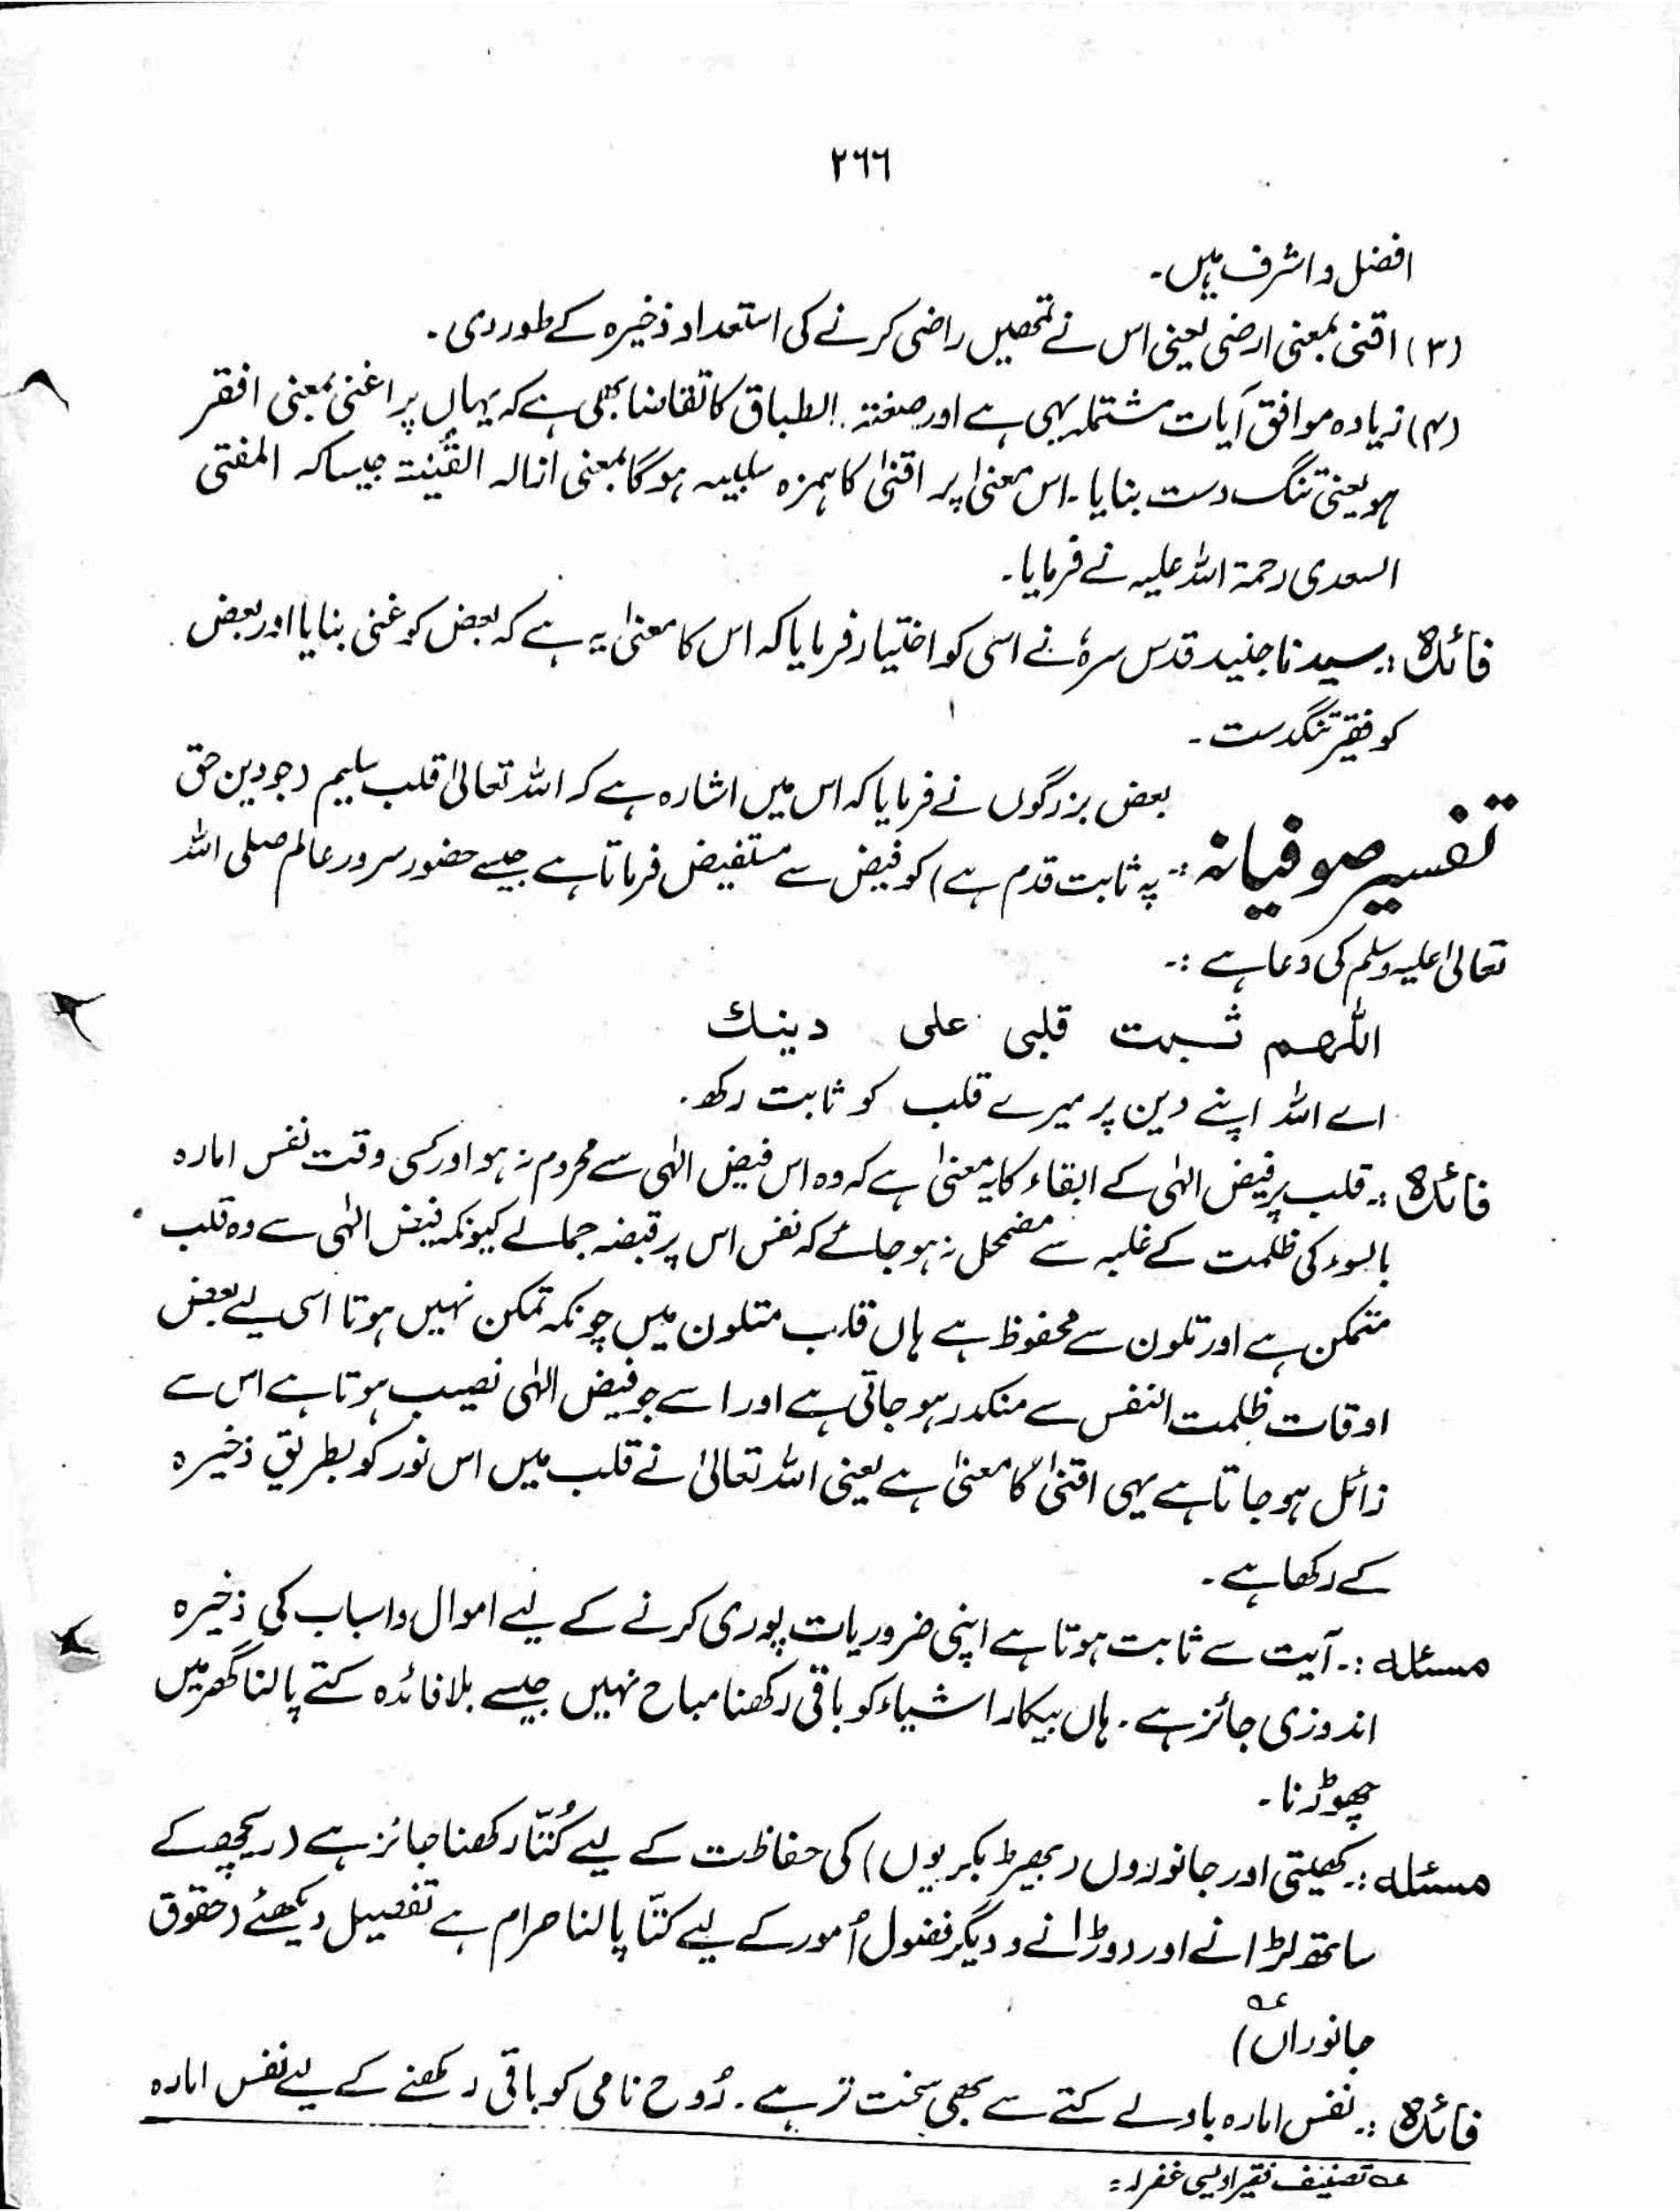 ۲۶۶
افضل و اشرف ہیں۔
(۳) اقنیٰ بمعنی ارضی یعنی اس نے تمھیں راضی کرنے کی استعداد ذخیرہ کے طور دی۔
(۴) زیادہ موافق آیات مشتملہ یہی ہے اور صنعتہ الطباق کا تقاضا بھی ہے کہ یہاں پر اغنی بمعنی افقر
ہو یعنی تنگ دست بنایا۔ اس معنیٰ پر اقنیٰ کا ہمزہ سلبیہ ہوگا بمعنی ازالہ القُنیۃ جیسا کہ المفتی
السعدی رحمۃ اللہ علیہ نے فرمایا۔
فائدہ :۔ سیدنا جنید قدس سرہٗ نے اسی کو اختیار فرمایا کہ اس کا معنیٰ یہ ہے کہ بعض کو غنی بنایا اور بعض
کو فقیر تنگدست۔
بعض بزرگوں نے فرمایا کہ اس میں اشارہ ہے کہ اللہ تعالیٰ قلب سلیم (جو دین حق
تفسیر صوفیانہ :۔ پہ ثابت قدم ہے) کو فیض سے مستفیض فرماتا ہے جیسے حضور سرور عالم صلی اللہ
تعالیٰ علیہ وسلم کی دعا ہے :۔
اللّٰھم ثبت قلبی علی دینك
اے اللہ اپنے دین پر میرے قلب کو ثابت رکھ۔
فائدہ :۔ قلب پر فیض الٰہی کے ابقاء کا یہ معنیٰ ہے کہ وہ اس فیض الٰہی سے محروم نہ ہو اور کسی وقت نفس امارہ
بالسوء کی ظلمت کے غلبہ سے مضمحل نہ ہو جائے کہ نفس اس پر قبضہ جمالے کیونکہ فیض الٰہی سے وہ قلب
متمکن ہے اور تلون سے محفوظ ہے ہاں قلب متلون میں چونکہ تمکن نہیں ہوتا اسی لیے بعض
اوقات ظلمت النفس سے منکدر ہو جاتی ہے اور اسے جو فیض الٰہی نصیب ہوتا ہے اس سے
زائل ہو جاتا ہے یہی اقنیٰ کا معنیٰ ہے یعنی اللہ تعالیٰ نے قلب میں اس نور کو بطریق ذخیرہ
کے رکھا ہے۔
مسئلہ :۔ آیت سے ثابت ہوتا ہے اپنی ضروریات پوری کرنے کے لیے اموال و اسباب کی ذخیرہ
اندوزی جائز ہے۔ ہاں بیکار اشیاء کو باقی رکھنا مباح نہیں جیسے بلا فائدہ کتے پالنا گھر میں
چھوڑنا۔
مسئلہ :۔ کھیتی اور جانوروں (بھیڑ بکریوں) کی حفاظت کے لیے کُتّا رکھنا جائز ہے (ریچھ کے
ساتھ لڑانے اور دوڑانے و دیگر فضول اُمور کے لیے کتّا پالنا حرام ہے تفصیل دیکھئے (حقوق
جانوراں عہ)
فائدہ :۔ نفس امارہ باولے کتے سے بھی سخت تر ہے۔ رُوح نامی کو باقی رکھنے کے لیے نفس امارہ
عہ تصنیف فقیر اویسی غفرلہ =